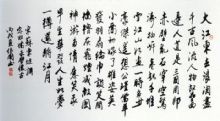 大江東去浪淘盡
千古風流人物故壘
西邊人道是三國周郎
赤壁亂石穿空驚
濤拍岸捲起千堆
雪江山如畫一時多
少豪傑遙想公瑾當年
小喬初嫁了雄姿英
發羽扇綸巾談笑間
檣櫓灰飛煙滅故國
神遊多情應笑我
早生華髮人生如夢
一樽還酹江月
宋蘇東坡詞
念奴嬌赤壁懷古